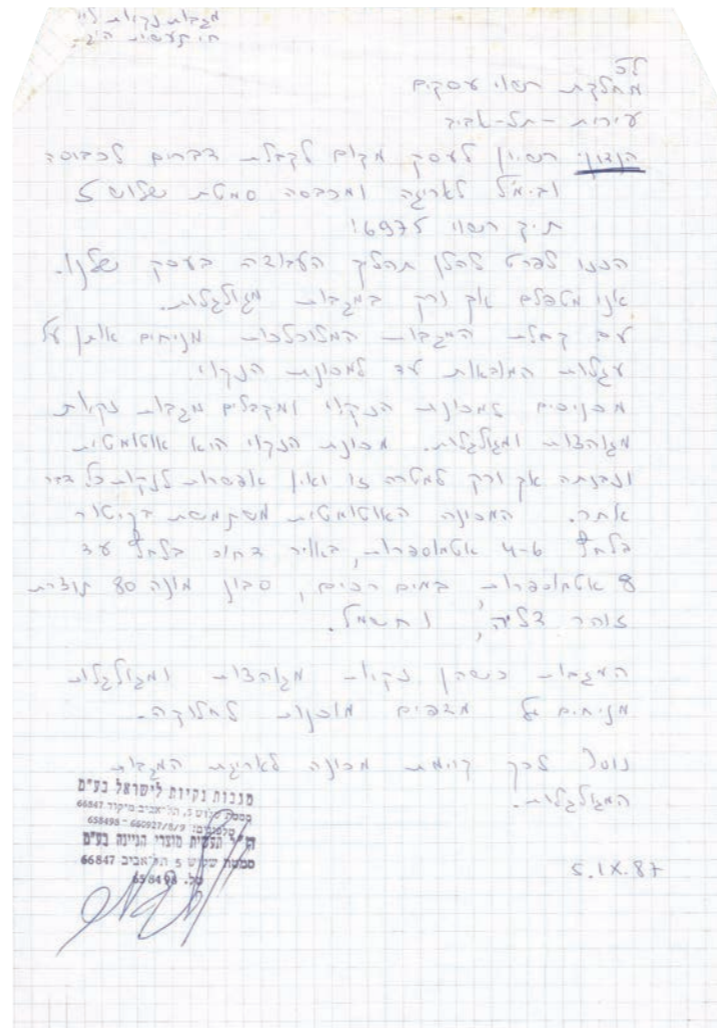 מגבות נקיות לי
חי תעשית היג
לכ'
מחלקת רשוי עסקים
עירית - תל-אביב
הנדון: רשיון לעסק מקום לקבלת דברים לכבוסה
ובימ"ל לאריגה ומכבסה סמטת שלוש 5
תיק רשוי 16975
הננו לפרט להלן תהליך העבודה בעסק שלנו.
אנו מטפלים אך ורק במגבות מגולגלות.
עם קבלת המגבות המלוכלכות מניחים אותן על
עגלות המובאות עד למכונת הנקוי.
מכניסים למכונת הנקוי ומקבלים מגבות נקיות
מגוהצות ומגולגלות. מכונת הנקוי היא אוטומטית
ונבנתה אך ורק למטרה זו ואין אפשרות לנקות כל דבר
אחר. המכונה האוטומטית משתמשת בקיטור
בלחץ 4-6 אטמוספרות, באויר דחוס בלחץ עד
8 אטמוספרות, במים רכים, סבון מונה 80 תוצרת
זוהר דליה, וחשמל.
המגבות כשהן נקיות מגוהצות ומגולגלות
מניחים על מדפים מוכנות לחלוקה.
נוסף לכך קיימת מכונה לאריגת המגבות
המגולגלות.
מגבות נקיות לישראל בע"מ
סמטת שלוש 5, תל-אביב מיקוד 66847
טלפונים: 660927/8/9 - 658498
תעשית מוצרי הגיינה בע"מ
סמטת שלוש 5 תל-אביב 66847
טל. 658498
5.IX.87